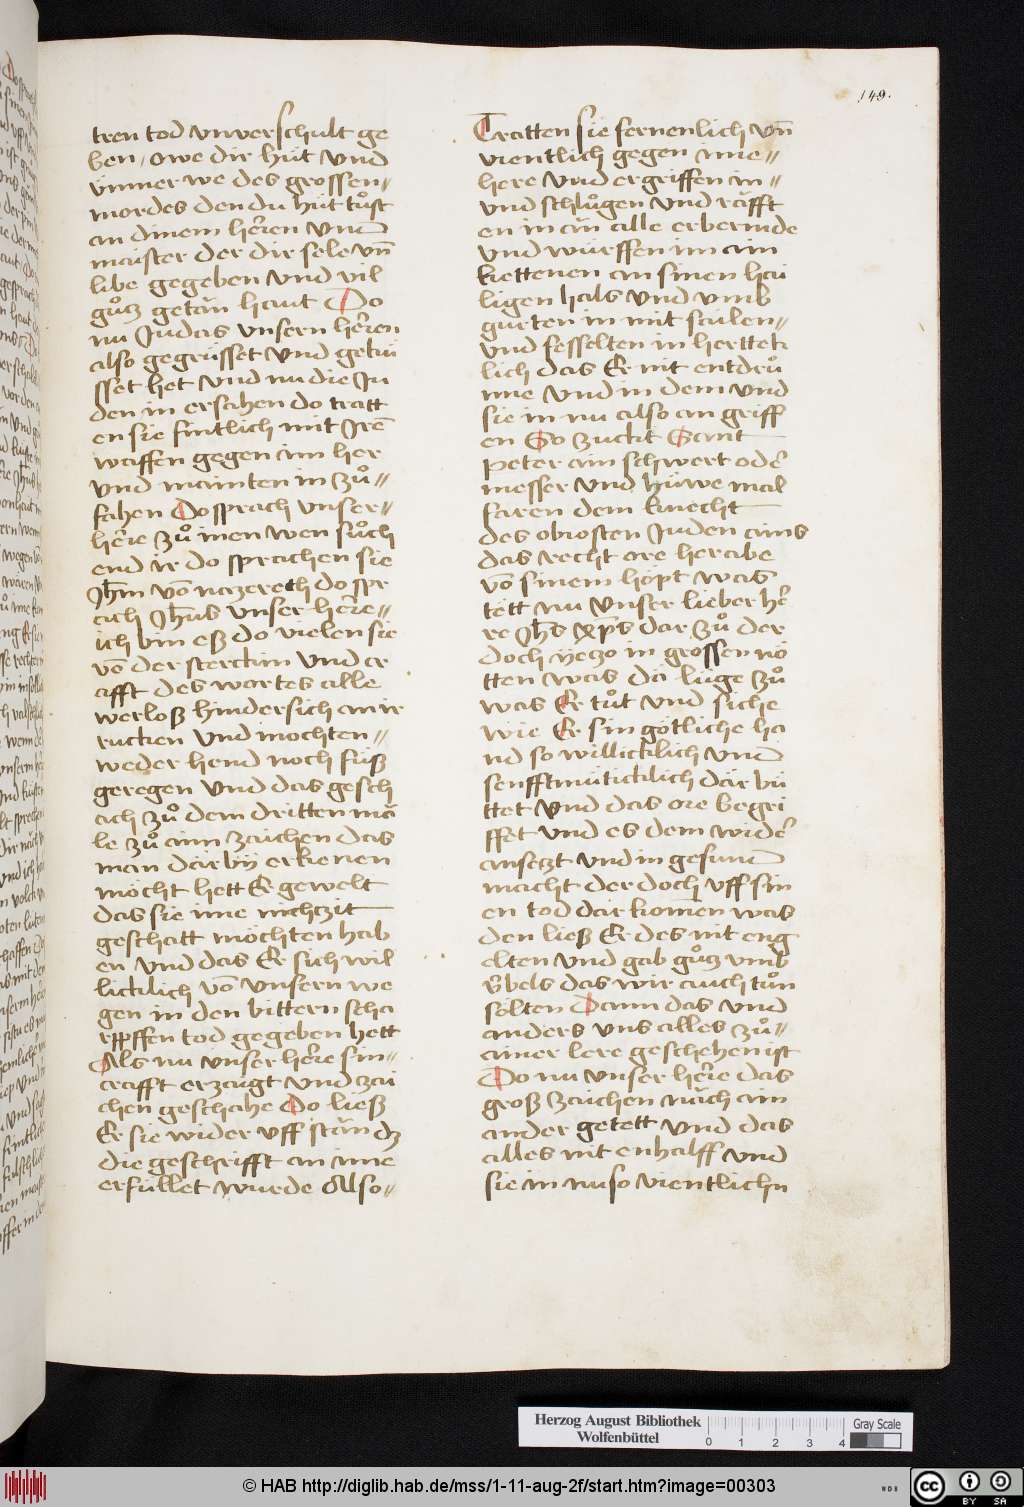 149.
tren tod vnverschult ge
ben / owe dir hüt vnd
ymmer we des grossen
mordes den du hüt tuͦst
an dinem herren vnd
maister der dir sele vn̄
libe gegeben vnd vil
guͦtz getän haut Do
nu Judas vnsern herren
also gegrüsset vnd gekü
sset het vnd nu die Ju
den in ersahen do tratt
en sie fintlich mit Jrē
waffen gegen im her
vnd mainten in zuͦ
fahen Do sprach vnser
herre zuͦ inen wen suͦch
end ir do sprachen sie
Jhm̄ vō nazereth do spr
ach Jhūs vnser herre
ich bin eß do vielen sie
vō der sterckin vnd cr
afft des wortes alle
werloß hindersich an ir
rucken vnd mochten
weder hend noch füß
geregen vnd das gesch
ach zuͦ dem dritten mä
le zuͦ aim zaichen das
man dar by erkenen
möcht hett Er gewelt
das sie ime nichzit
geschatt möchten hab
en vnd das Er sich wil
licklich vō vnsern we
gen in den bittern scha
rpffen tod gegeben hett
Als nu vnser herre sin
crafft erzaugt vnd zai
chen geschahe Do ließ
Er sie wider vff stän dz
die geschrifft an ime
erfüllet wurde Also
Tratten sie fernenlich vn̄
vientlich gegen ime
here vnd ergriffen in
vnd schluͦgen vnd räfft
en in än alle erbermde
vnd würffen im ain
kettenen an sinen hai
ligen hals vnd vmb
gurten in mit sailen
vnd fesselten in herttek
lich das Er nit entdruͦ
nne vnd in dem vnd
sie in nu also an griff
en So zuckt Sant
peter ain schwert oder
messer vnd hüwe mal
faren dem knecht
des obrosten Juden ains
das recht ore herabe
vō sinem höpt was
tett nu vnser lieber her
re Jhs xp̄s dar zuͦ der
doch yetzo in grossen nö
tten was da luge zuͦ
was Er tuͦt vnd siche
wie Er sin götliche ha
nd so willicklich vnd
senfftmüticklich där bü
ttet vnd das ore begri
ffet vnd es dem wider
ansetzt vnd in gesund
macht der doch vff sin
en tod där komen was
den ließ Er des nit eng
elten vnd gab guͦtz vmb
v̈bels das wir auch tuͦn
sölten Dann das vnd
anders vns alles zuͦ
ainer lere geschehen ist
Do nu vnser herre das
groß zaichen näch aim
ander getett vnd das
alles nit enhalff vnd
sie in nu so vientlichn
Herzog August Bibliothek
Wolfenbüttel
Gray Scale
0 1 2 3 4
© HAB http://diglib.hab.de/mss/1-11-aug-2f/start.htm?image=00303
WDB
cc BY SA